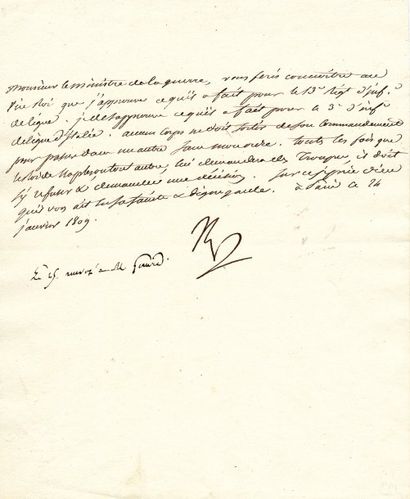 Monsieur le ministre de la guerre, vous ferés connoitre au
Vice Roi que j'approuve ce qu'il a fait pour le 13e Regt d'inf.
de ligne. je désapprouve ce qu'il a fait pour le 3e d'inf
de ligne d'Italie. aucun corps ne doit sortir de son Commandement
pour passer dans un autre sans mon ordre. toutes les fois que
le Roi de Naples ou tout autre, lui demandera des Troupes, il doit
s'y refuser & demander une décision. sur ce je prie dieu
qu'il vous ait en sa sainte & digne garde. à Paris le 24
janvier 1809.
Le 25 renvoyé à M